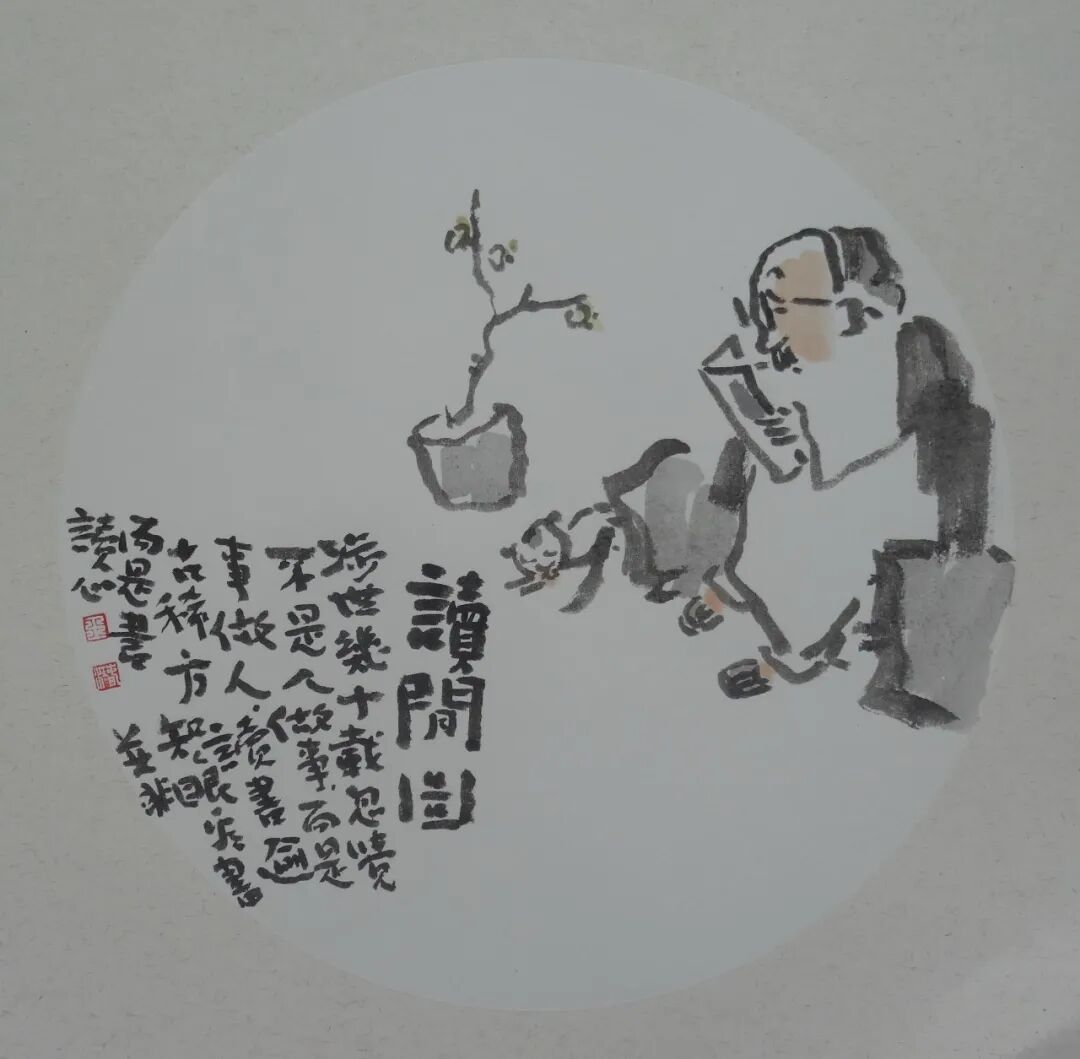 讀閒
涉世幾十載忽覺
不是人做事而是
事做人讀書逾
古稀方知眼書
並非
而是書
讀心